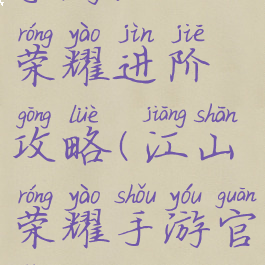 róng yào jìn jiē
荣耀进阶
gōng lüè jiāng shān
攻略(江山
róng yào shǒu yóu guān
荣耀手游官